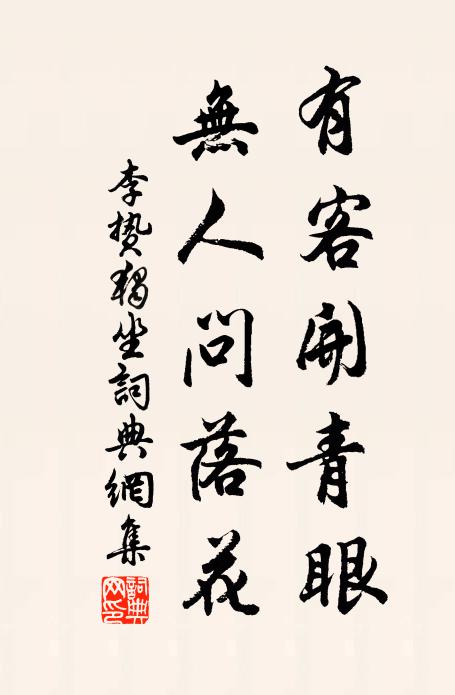 有客開青眼
無人問落花
李贄獨坐詞典網集
詞典網印